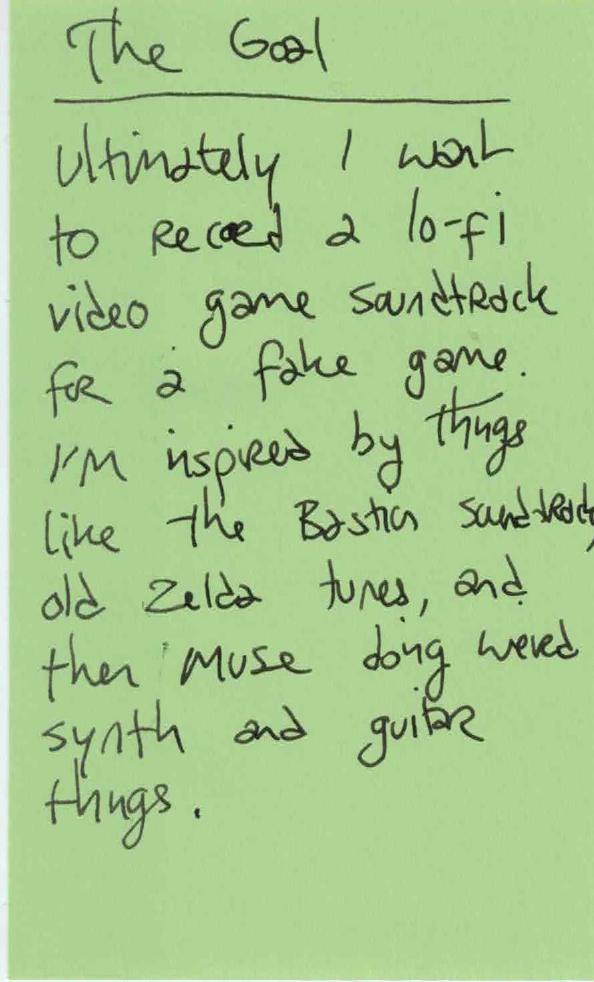 The Goal
Ultimately I want
to record a lo-fi
video game soundtrack
for a fake game.
I'm inspired by things
like the Bastion soundtrack,
old Zelda tunes, and
then Muse doing weird
synth and guitar
things.